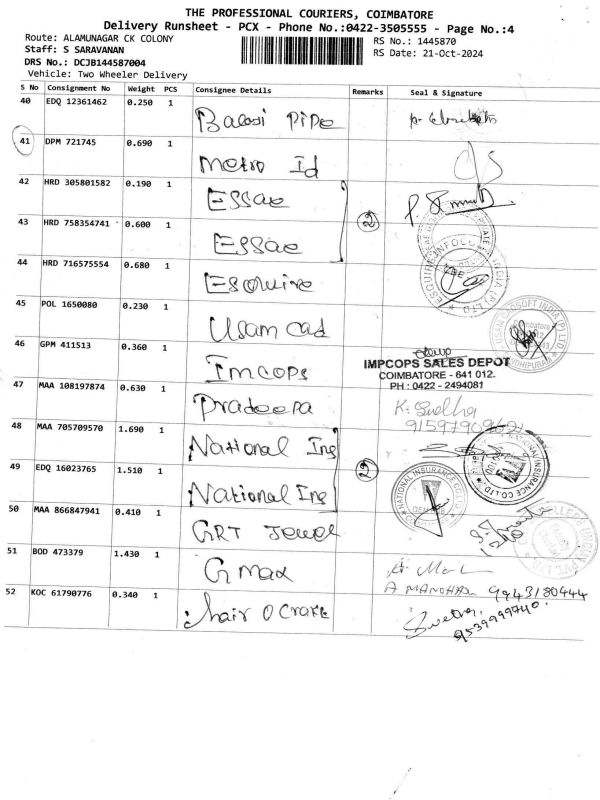 THE PROFESSIONAL COURIERS, COIMBATORE
Delivery Runsheet - PCX - Phone No.:0422-3505555 - Page No.:4
Route: ALAMUNAGAR CK COLONY
RS No.: 1445870
Staff: S SARAVANAN
RS Date: 21-Oct-2024
DRS No.: DCJB144587004
Vehicle: Two Wheeler Delivery
S No Consignment No Weight PCS Consignee Details Remarks Seal & Signature
40 EDQ 12361462 0.250 1 Balaji Pipe
41 DPM 721745 0.690 1 Metro Id
42 HRD 305801582 0.190 1 Essae
43 HRD 758354741 0.600 1 Essae 2
44 HRD 716575554 0.680 1 Esquire
45 POL 1650080 0.230 1 Usam cad
46 GPM 411513 0.360 1 Imcops
IMPCOPS SALES DEPOT
COIMBATORE - 641 012.
PH : 0422 - 2494081
47 MAA 108197874 0.630 1 Pradeepa K. Sudha
48 MAA 705709570 1.690 1 National Ins
NATIONAL INSURANCE CO LTD
49 EDQ 16023765 1.510 1 National Ins
NATIONAL INSURANCE CO LTD
50 MAA 866847941 0.410 1 GRT Jewel
51 BOD 473379 1.430 1 G max
A MANOHAR 9943180444
52 KOC 61790776 0.340 1 hair O Crake
Swetha,
9539999740.